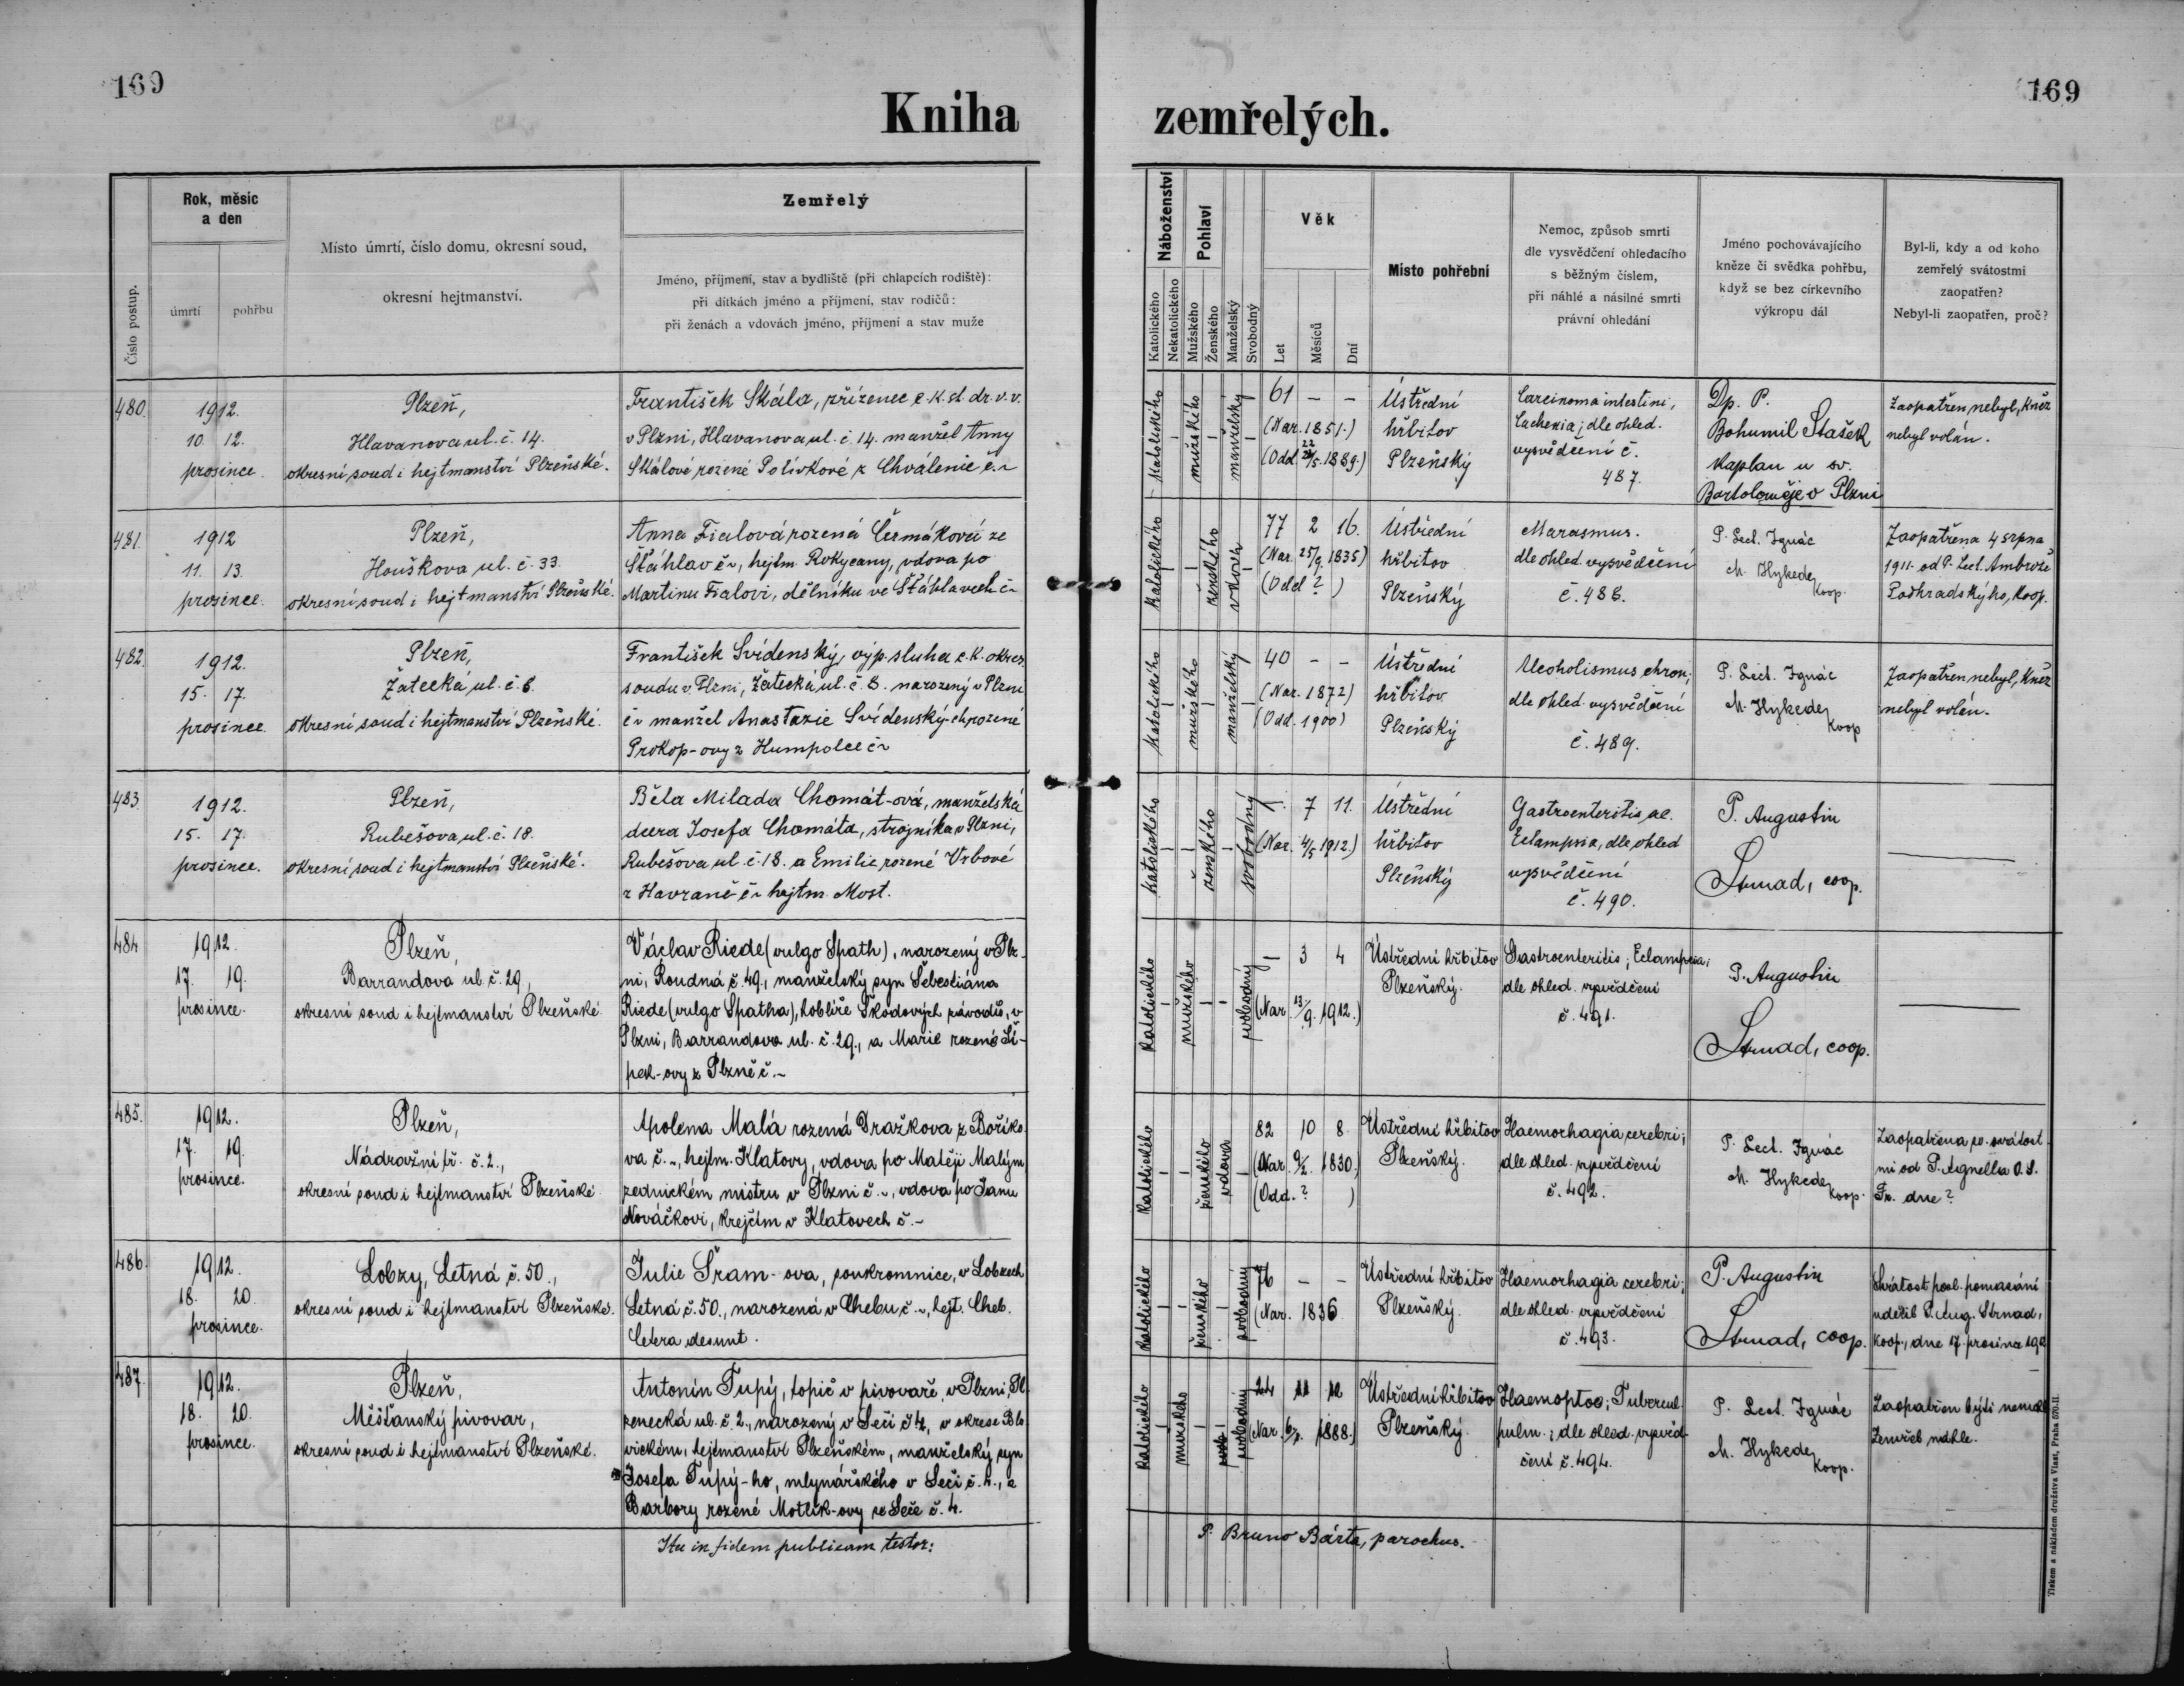 169
169
Kniha zemřelých.
Číslo postup.
Rok, měsíc
a den
úmrtí
pohřbu
Místo úmrtí, číslo domu, okresní soud,
okresní hejtmanství.
Zemřelý
Jméno, příjmení, stav a bydliště (při chlapcích rodiště):
při dítkách jméno a příjmení, stav rodičů:
při ženách a vdovách jméno, příjmení a stav muže
Náboženství
Katolického
Nekatolického
Pohlaví
Mužského
Ženského
Manželský
Svobodný
Věk
Let
Měsíců
Dní
Místo pohřební
Nemoc, způsob smrti
dle vysvědčení ohledacího
s běžným číslem,
při náhlé a násilné smrti
právní ohledání
Jméno pochovávajícího
kněze či svědka pohřbu,
když se bez církevního
výkropu dál
Byl-li, kdy a od koho
zemřelý svátostmi
zaopatřen?
Nebyl-li zaopatřen, proč?
480.
1912.
10. 12.
prosince.
Plzeň,
Hlavanova ul. č. 14.
okresní soud i hejtmanství Plzeňské.
František Skála, přízenec c. k. st. dr. v. v.
v Plzni, Hlavanova ul. č. 14. manžel Anny
Skálové rozené Polívkové z Chválenic č. ~
katolického
mužského
manželský
61 - -
(Nar. 1851.)
(Odd. 22/5. 1889.)
Ústřední
hřbitov
Plzeňský
Carcinoma intestini,
Cachexia; dle ohled.
vysvědčení č.
487.
Dp. P.
Bohumil Stašek,
kaplan u sv.
Bartoloměje v Plzni
Zaopatřen nebyl, kněz
nebyl volán.
481.
1912
11. 13.
prosince.
Plzeň,
Houškova ul. č. 33.
okresní soud i hejtmanství Plzeňské.
Anna Fialová rozená Čermáková ze
Šťáhlav č ~, hejtm. Rokycany, vdova po
Martinu Fialovi, dělníku ve Šťáhlavech č ~
katolického
ženského
vdova
77 2 16.
(Nar. 25/9 1835)
(Odd ? )
Ústřední
hřbitov
Plzeňský
Marasmus.
dle ohled. vysvědčení
č. 488.
P. Lect. Ignác
M. Hykede,
koop.
Zaopatřena 4 srpna
1911. od P. Lect. Ambrože
Podhradského, koop.
482.
1912.
15. 17.
prosince.
Plzeň,
Žatecká ul. č. 8.
okresní soud i hejtmanství Plzeňské.
František Svídenský, výp. sluha c. k. okres.
soudu v Plzni, Žatecká ul. č. 8. narozený v Plzni
č ~ manžel Anastazie Svídenský-ch rozené
Prokop-ovy z Humpolce č ~
katolického
mužského
manželský
40 - -
(Nar. 1872)
(Odd. 1900)
Ústřední
hřbitov
Plzeňský
Alcoholismus chron;
dle ohled. vysvědčení
č. 489.
P. Lect. Ignác
M. Hykede,
koop
Zaopatřen nebyl, kněz
nebyl volán.
483.
1912.
15. 17.
prosince.
Plzeň,
Rubešova ul. č. 18.
okresní soud i hejtmanství Plzeňské.
Běla Milada Chomát-ová, manželská
dcera Josefa Chomáta, strojníka v Plzni,
Rubešova ul. č. 18. a Emilie, rozené Vrbové
z Havraně č ~ hejtm. Most.
katolického
ženského
svobodný
- 7 11.
(Nar. 4/5 1912)
Ústřední
hřbitov
Plzeňský
Gastroenteritis ac.
Eclampsia, dle ohled
vysvědčení
č. 490.
P. Augustin
Strnad, coop.
484
1912.
17. 19.
prosince.
Plzeň,
Barrandova ul. č. 29,
okresní soud i hejtmanství Plzeňské.
Václav Riede (vulgo Spath), narozený v Plz-
ni, Roudná č. 49., manželský syn Šebestiána
Riede (vulgo Spatha), hoblíře Škodových závodů, v
Plzni, Barrandova ul. č. 29., a Marie rozené Ší-
pek-ovy z Plzně č. ~
katolického
mužského
svobodný
- 3 4
(Nar. 13/9. 1912.)
Ústřední hřbitov
Plzeňský.
Gastroenteritis; Eclampsia;
dle ohled. vysvědčení
č. 491.
P. Augustin
Strnad, coop.
485.
1912.
17. 19.
prosince.
Plzeň,
Nádražní tř. č. 2.,
okresní soud i hejtmanství Plzeňské
Apolena Malá rozená Dražkova z Boříko
va č. ~, hejtm. Klatovy, vdova po Matěji Malým
zednickém mistru v Plzni č. ~, vdova po Janu
Nováčkovi, krejčím v Klatovech č. ~
katolického
ženského
vdova
82 10 8.
(Nar. 9/2. 1830.)
(Odd. ? )
Ústřední hřbitov
Plzeňský.
Haemorhagia cerebri;
dle ohled. vysvědčení
č. 492.
P. Lect. Ignác
M. Hykede,
koop.
Zaopatřena sv. svátost
mi od P. Agnella O. S.
Fr. dne ?
486.
1912.
18. 20.
prosince.
Lobzy, Letná č. 50.,
okresní soud i hejtmanství Plzeňské.
Julie Šram-ova, soukromnice, v Lobzech
Letná č. 50., narozená v Chebu č. ~, hejt. Cheb.
Cetera desunt.
katolického
ženského
svobodný
76 - -
(Nar. 1836
Ústřední hřbitov
Plzeňský.
Haemorhagia cerebri;
dle ohled. vysvědčení
č. 493.
P. Augustin
Strnad, coop.
Svátost posl. pomazání
udělil P. Aug. Strnad,
koop., dne 17. prosince 1912
487.
1912.
18. 20.
prosince.
Plzeň,
Měšťanský pivovar,
okresní soud i hejtmanství Plzeňské.
Antonín Tupý, topič v pivovaře, v Plzni, Pl
zenecká ul. č. 2., narozený v Seči č 4, v okrese Blo
vickém, hejtmanství Plzeňském, manželský syn
Josefa Tupý-ho, mlynářského v Seči č. 4., a
Barbory rozené Motlík-ovy ze Seče č. 4.
katolického
mužského
svobodný
24 11 12
(Nar. 1888.)
Ústřední hřbitov
Plzeňský.
Haemoptoe; Tubercul.
pulm.; dle ohled. vysvěd-
čení č. 494.
P. Lect. Ignác
M. Hykede,
koop.
Zaopatřen býti nemohl
Zemřel náhle.
Ita in fidem publicam testor:
P. Bruno Bárta, parochus.
Tiskem a nákladem družstva Vlast, Praha 570-II.